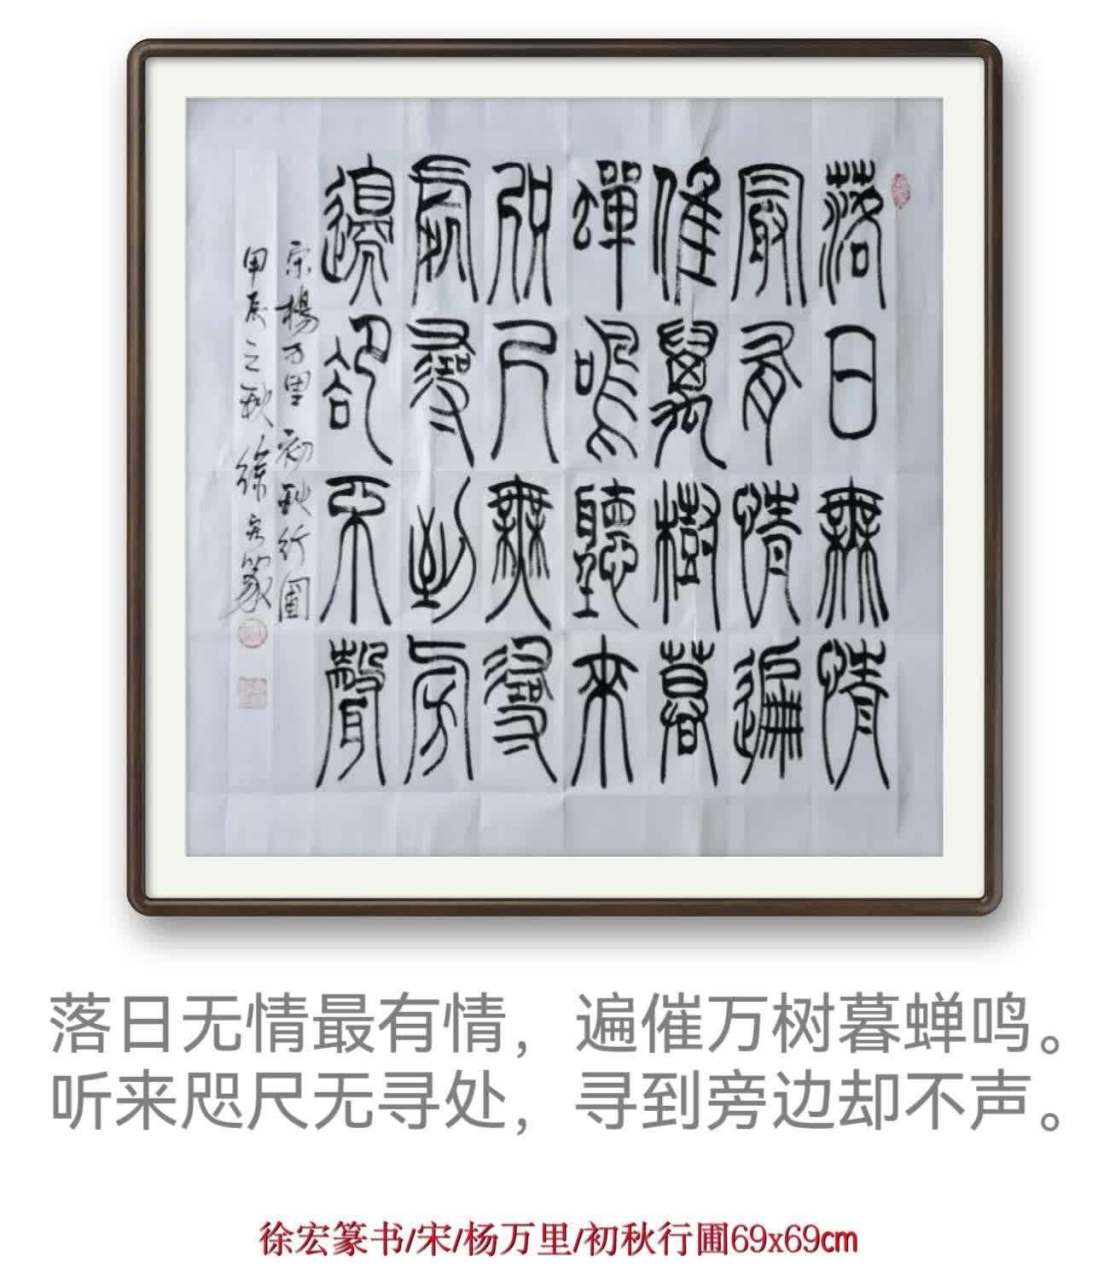 落日無情
最有情遍
催萬樹暮
蟬鳴聽來
咫尺無尋
處尋到旁
邊却不聲
宋楊万里初秋行圃
甲辰之秋徐宏篆
落日无情最有情，遍催万树暮蝉鸣。
听来咫尺无寻处，寻到旁边却不声。
徐宏篆书/宋/杨万里/初秋行圃69x69cm